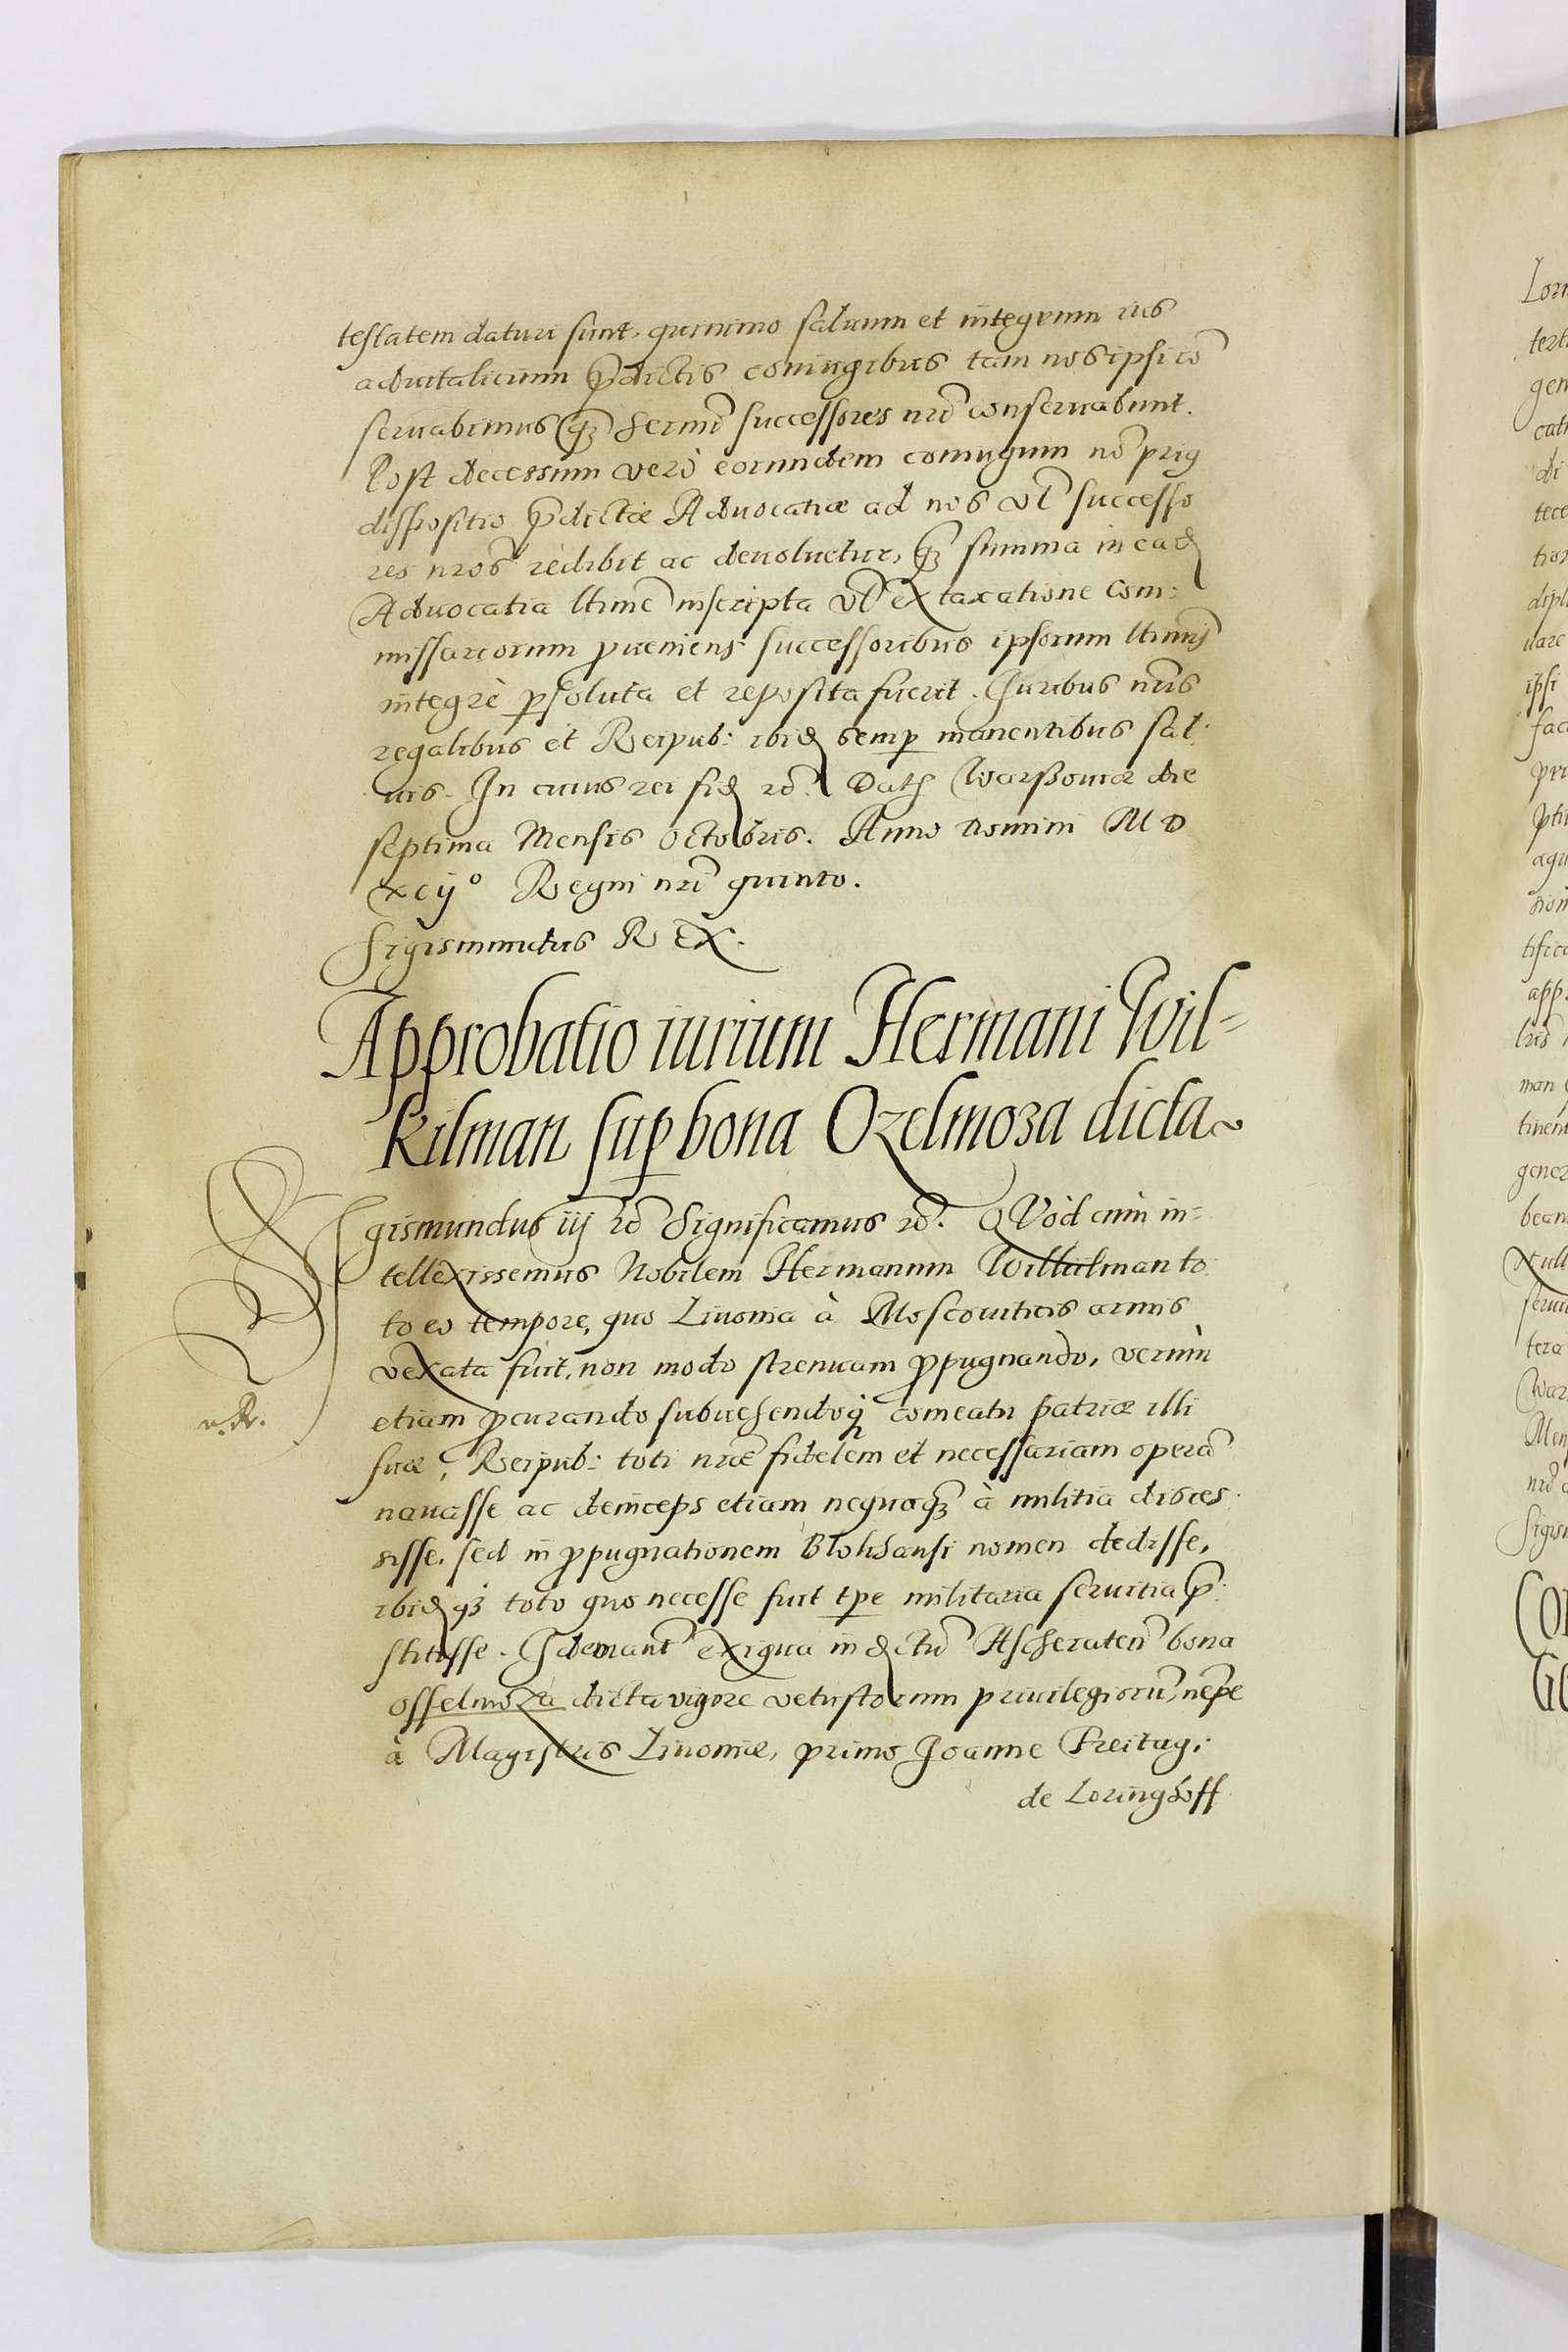 testatem daturi sunt, quinimo saluum et integrum ius
aduitalicium p̃dictis coniugibus tam nos ipsi cõ
seruabimus q̃ȝ sermi͂ successores nr̃i conseruabunt.
Post decessum verò eorundem coniugum nõ prius
dispositio p̃dictæ Aduocatiæ ad nos vl̃ successo
res nr̃os redibit ac deuoluetur, q̃ȝ summa in eadē
Aduocatia ltime͂ inscripta vl̃ ex taxatione Com:
missariorum ꝓueniens successoribus ipsorum ltimis͂
integrè ꝑsoluta et reposita fuerit. Iuribus nr̃is
regalibus et Reipub: ibidē semꝑ manentibus sal:
uis. In cuius rei fidē etc̃. Datū Warßouiæ die
septima Mensis Octobris. Anno Domini MD
xcij° Regni nr̃i quinto.
Sigismundus REX.
Approbatio iurium Hermani Wil=
kilman suꝑ bona Ozelmoza dicta
Sigismundus iij etc̃ Significamus etc̃. QVòd cùm in=
tellexissemus Nobilem Hermanum Willulman to
to eo tempore, quo Liuonia à Moscouiticis armis
vexata fuit, non modo strenuam ꝓpugnando, verùm
etiam ꝓcurando subuehendoq̨ comeatu patriæ illi
suæ, Reipub: toti nr̃æ fidelem et necessariam operã
nauasse ac deinceps etiam nequaq̃ȝ à militia disces
sisse, sed in ꝓpugnationem Blohsansi nomen dedisse,
ibidē qȝ toto quo necesse fuit tp̃e militaria seruitia p̃:
stitisse. Idem aut͂ exigua in dis̃ctu͂ Ascheraten͂ bona
Osselmoza dicta vigore vetustorum priuilegioru͂, nẽpe
à Magistris Liuoniæ, primo Joanne Freitag:
de Loringhoff